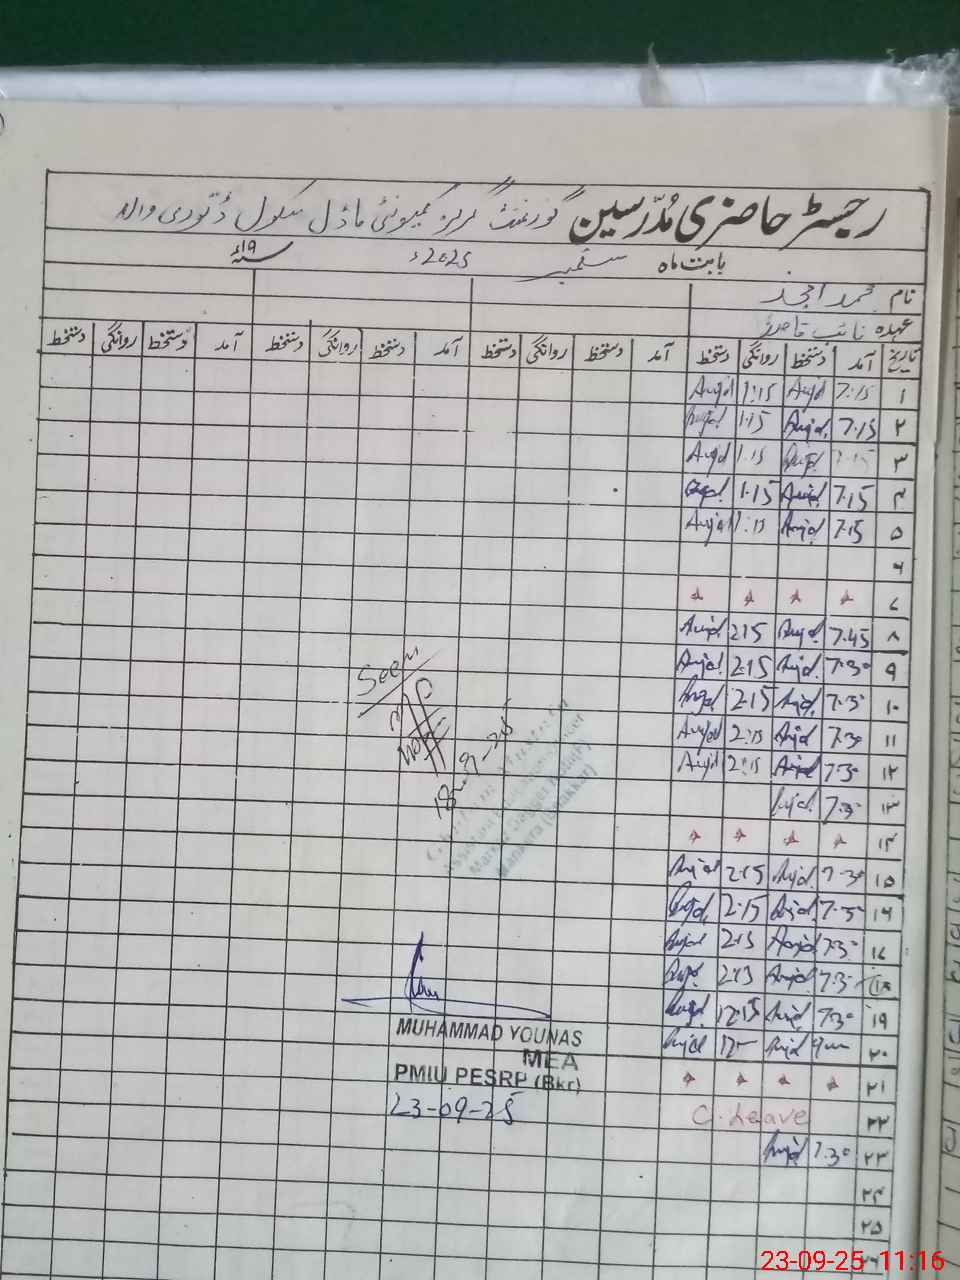 رجسٹر حاضری مُدرسین گورنمنٹ گرلز کمیونٹی ماڈل سکول ڈتوری والہ
بابت ماہ ستمبر 2025ء ۱۹ء
نام محمد امجد
عہدہ نائب قاصد
تاریخ آمد دستخط روانگی دستخط آمد دستخط روانگی دستخط آمد دستخط روانگی دستخط آمد دستخط روانگی دستخط
۱ 7:15 Amjd 1:15 Amjd
۲ 7.15 Amjd 1.15 Amjd
۳ 7.15 Amjd 1.15 Amjd
۴ 7.15 Amjd 1.15 Amjd
۵ 7.15 Amjd 1:15 Amjd
۶
۷
۸ 7.45 Amjd 2:15 Amjd
۹ 7.30 Amjd 2:15 Amjd
۱۰ 7.30 Amjd 2.15 Amjd
۱۱ 7.30 Amjd 2:15 Amjd
۱۲ 7.30 Amjd 2:15 Amjd
۱۳ 7.30 Amjd
۱۴
۱۵ 7.30 Amjd 2.15 Amjd
۱۶ 7.30 Amjd 2.15 Amjd
۱۷ 7.30 Amjd 2.15 Amjd
۱۸ 7.30 Amjd 2:15 Amjd
۱۹ 7.30 Amjd 12:15 Amjd
۲۰ Amjd Amjd
۲۱
۲۲ C. Leave
۲۳ 7.30 Amjd
۲۴
۲۵
Seen
18-9-25
Assistant
Mankera (Bhakkar)
MUHAMMAD YOUNAS
MEA
PMIU PESRP (Bkr)
23-09-25
23-09-25 11:16